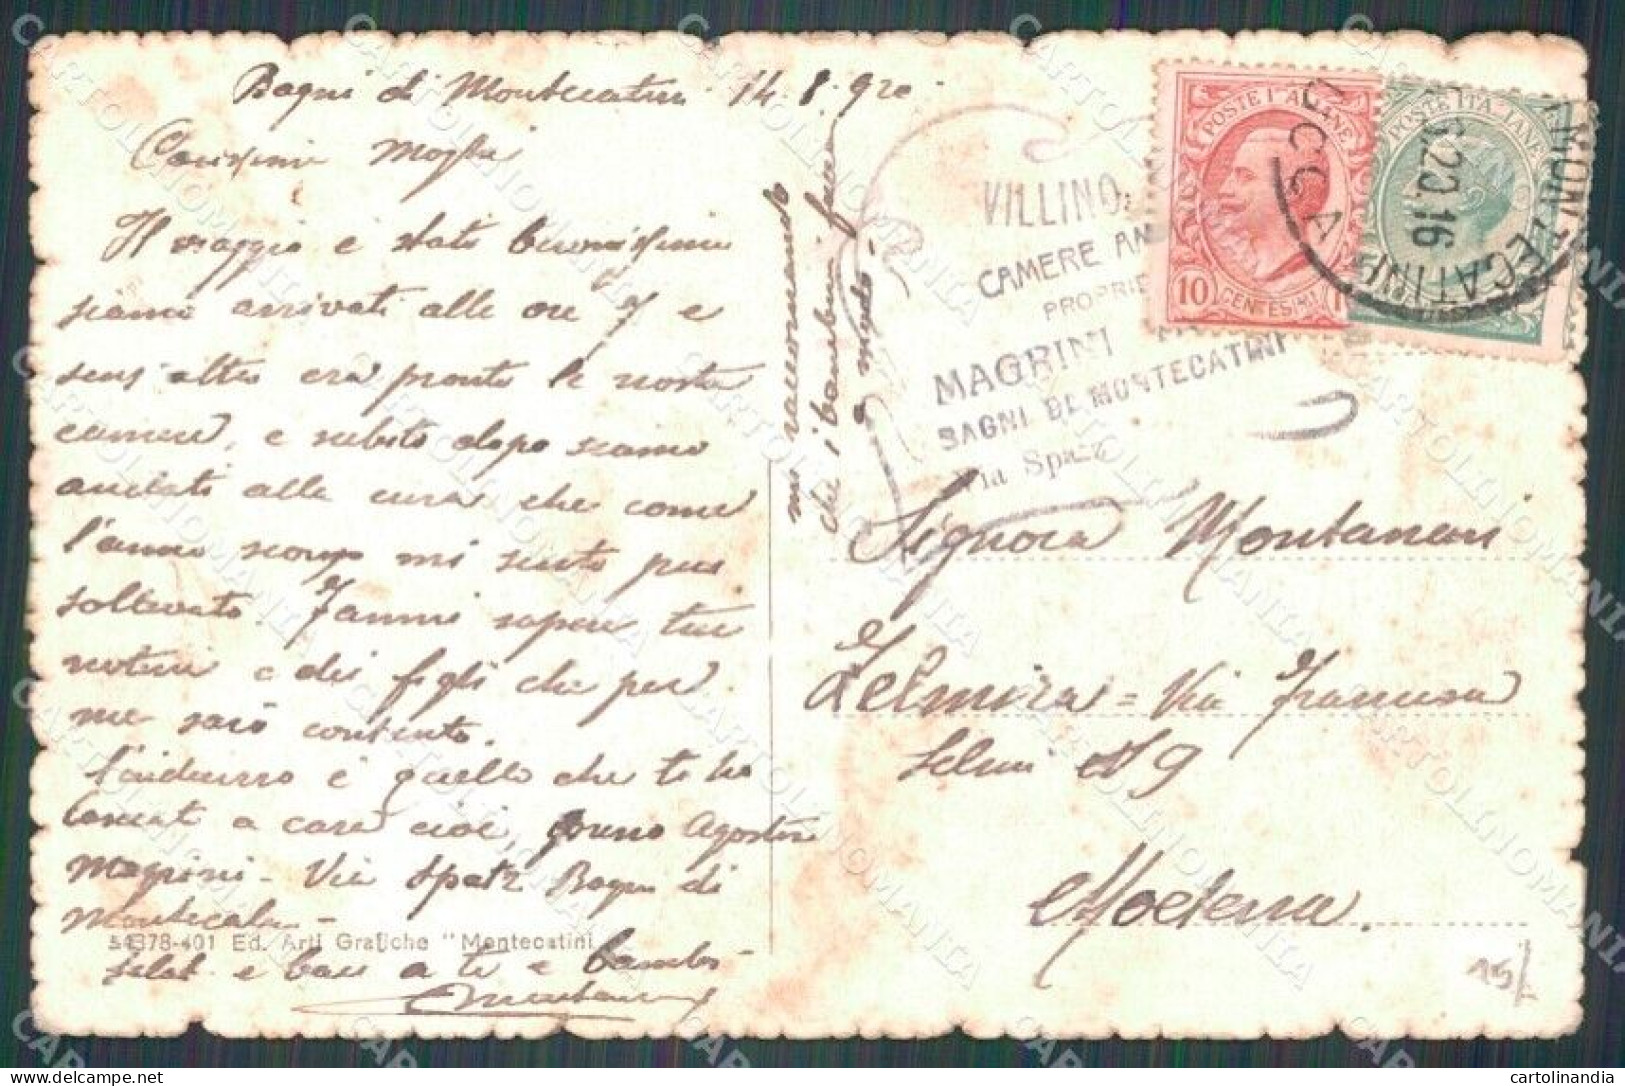 Bagni di Montecatini 14.8.920
Carissima Moglie
Il viaggio è stato buonissimo
siamo arrivati alle ore 7 e
senz'altro era pronto le nostre
camere, e subito dopo siamo
andati alla cura che come
l'anno scorso mi sento pure
sollevato. Fammi sapere tue
notizie e dei figli che per
me sarò contento.
L'indirizzo è quello che ti ho
lasciato a casa cioè, presso Agostino
Magrini - Via Spatz Bagni di
Montecatini -
54378-401 Ed. Arti Grafiche "Montecatini
saluti e baci a te e bambini
mi raccomando
che i bambini fare
a modo -
VILLINO
CAMERE AM
PROPRIE
MAGRINI
BAGNI DI MONTECATINI
Via Spatz
POSTE ITALIANE
10 CENTESIMI 1
POSTE ITALIANE
MONTECATINI
.20.16
LUCCA
Signora Montanari
Zelmira = Via Francesca
Selmi N 9
Modena.
15/-
CARTOLINOMANIA
cartolinandia